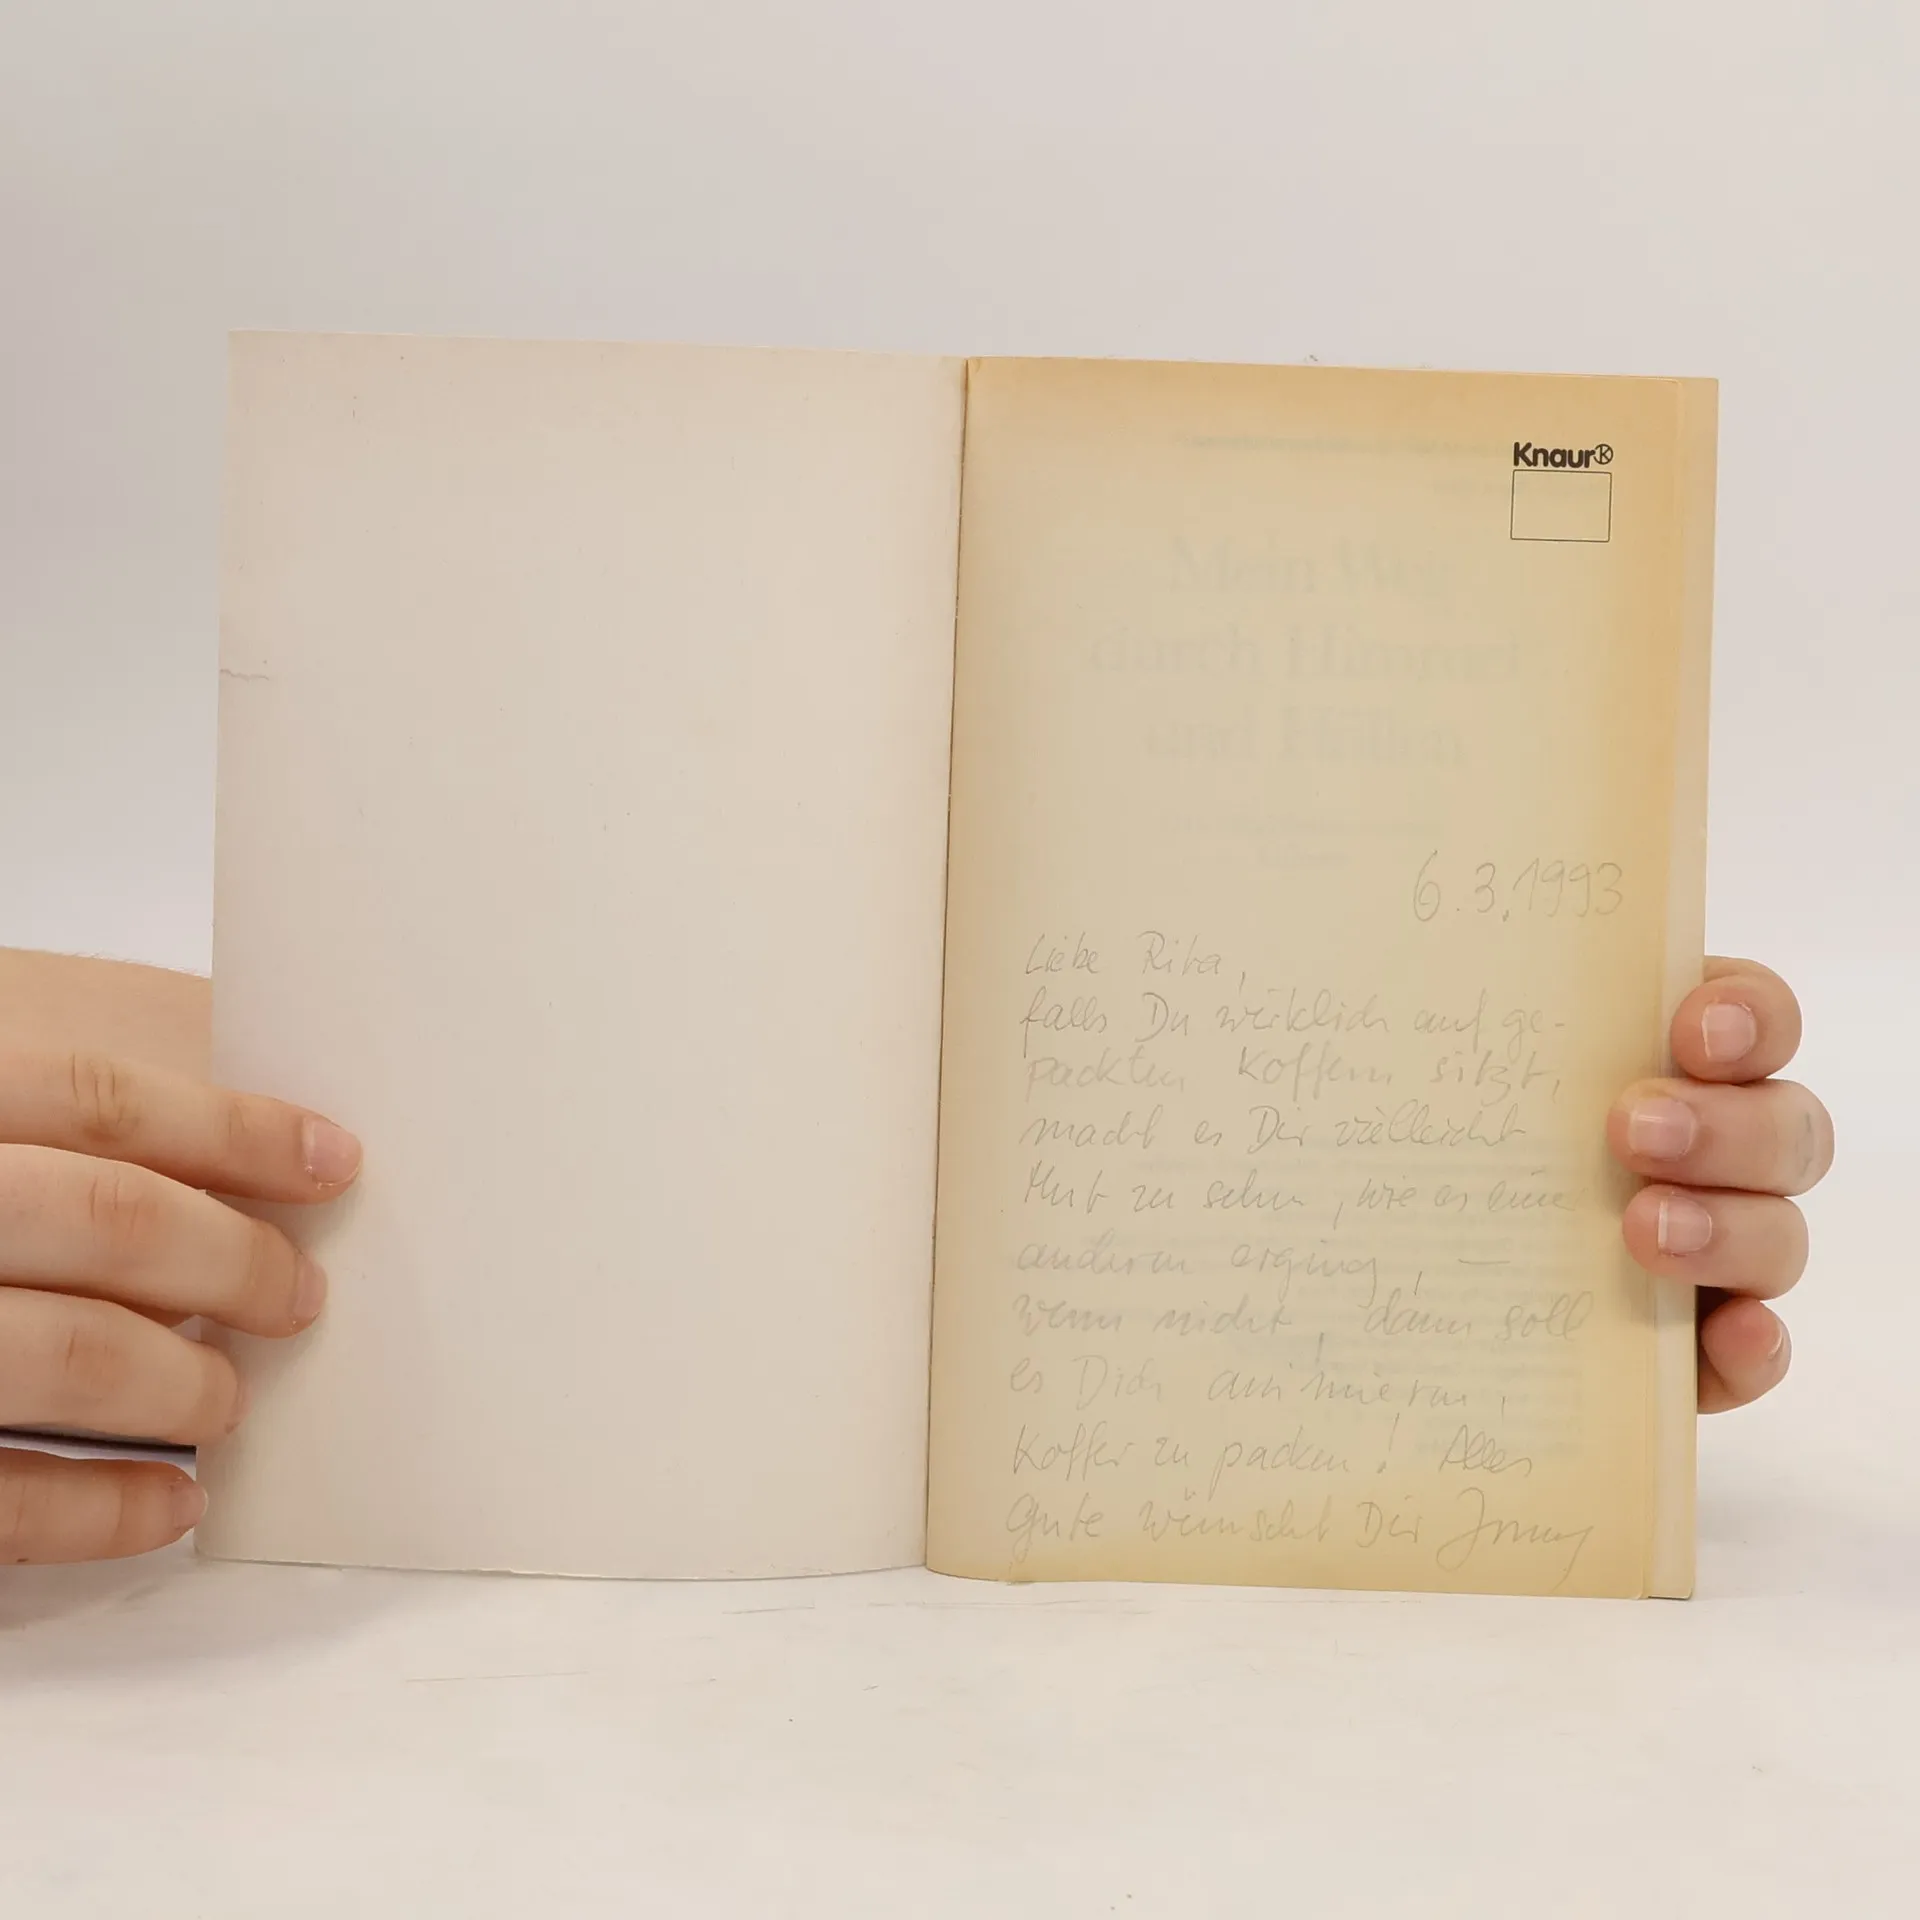 Knaur
Mein Weg
durch Himmel
und Höllen
6.3.1993
Liebe Rita,
falls Du wirklich auf ge-
packten Koffern sitzt,
macht es Dir vielleicht
Mut zu sehn, wie es einer
anderen erging, —
wenn nicht, dann soll
es Dich animieren,
Koffer zu packen! Alles
Gute wünscht Dir